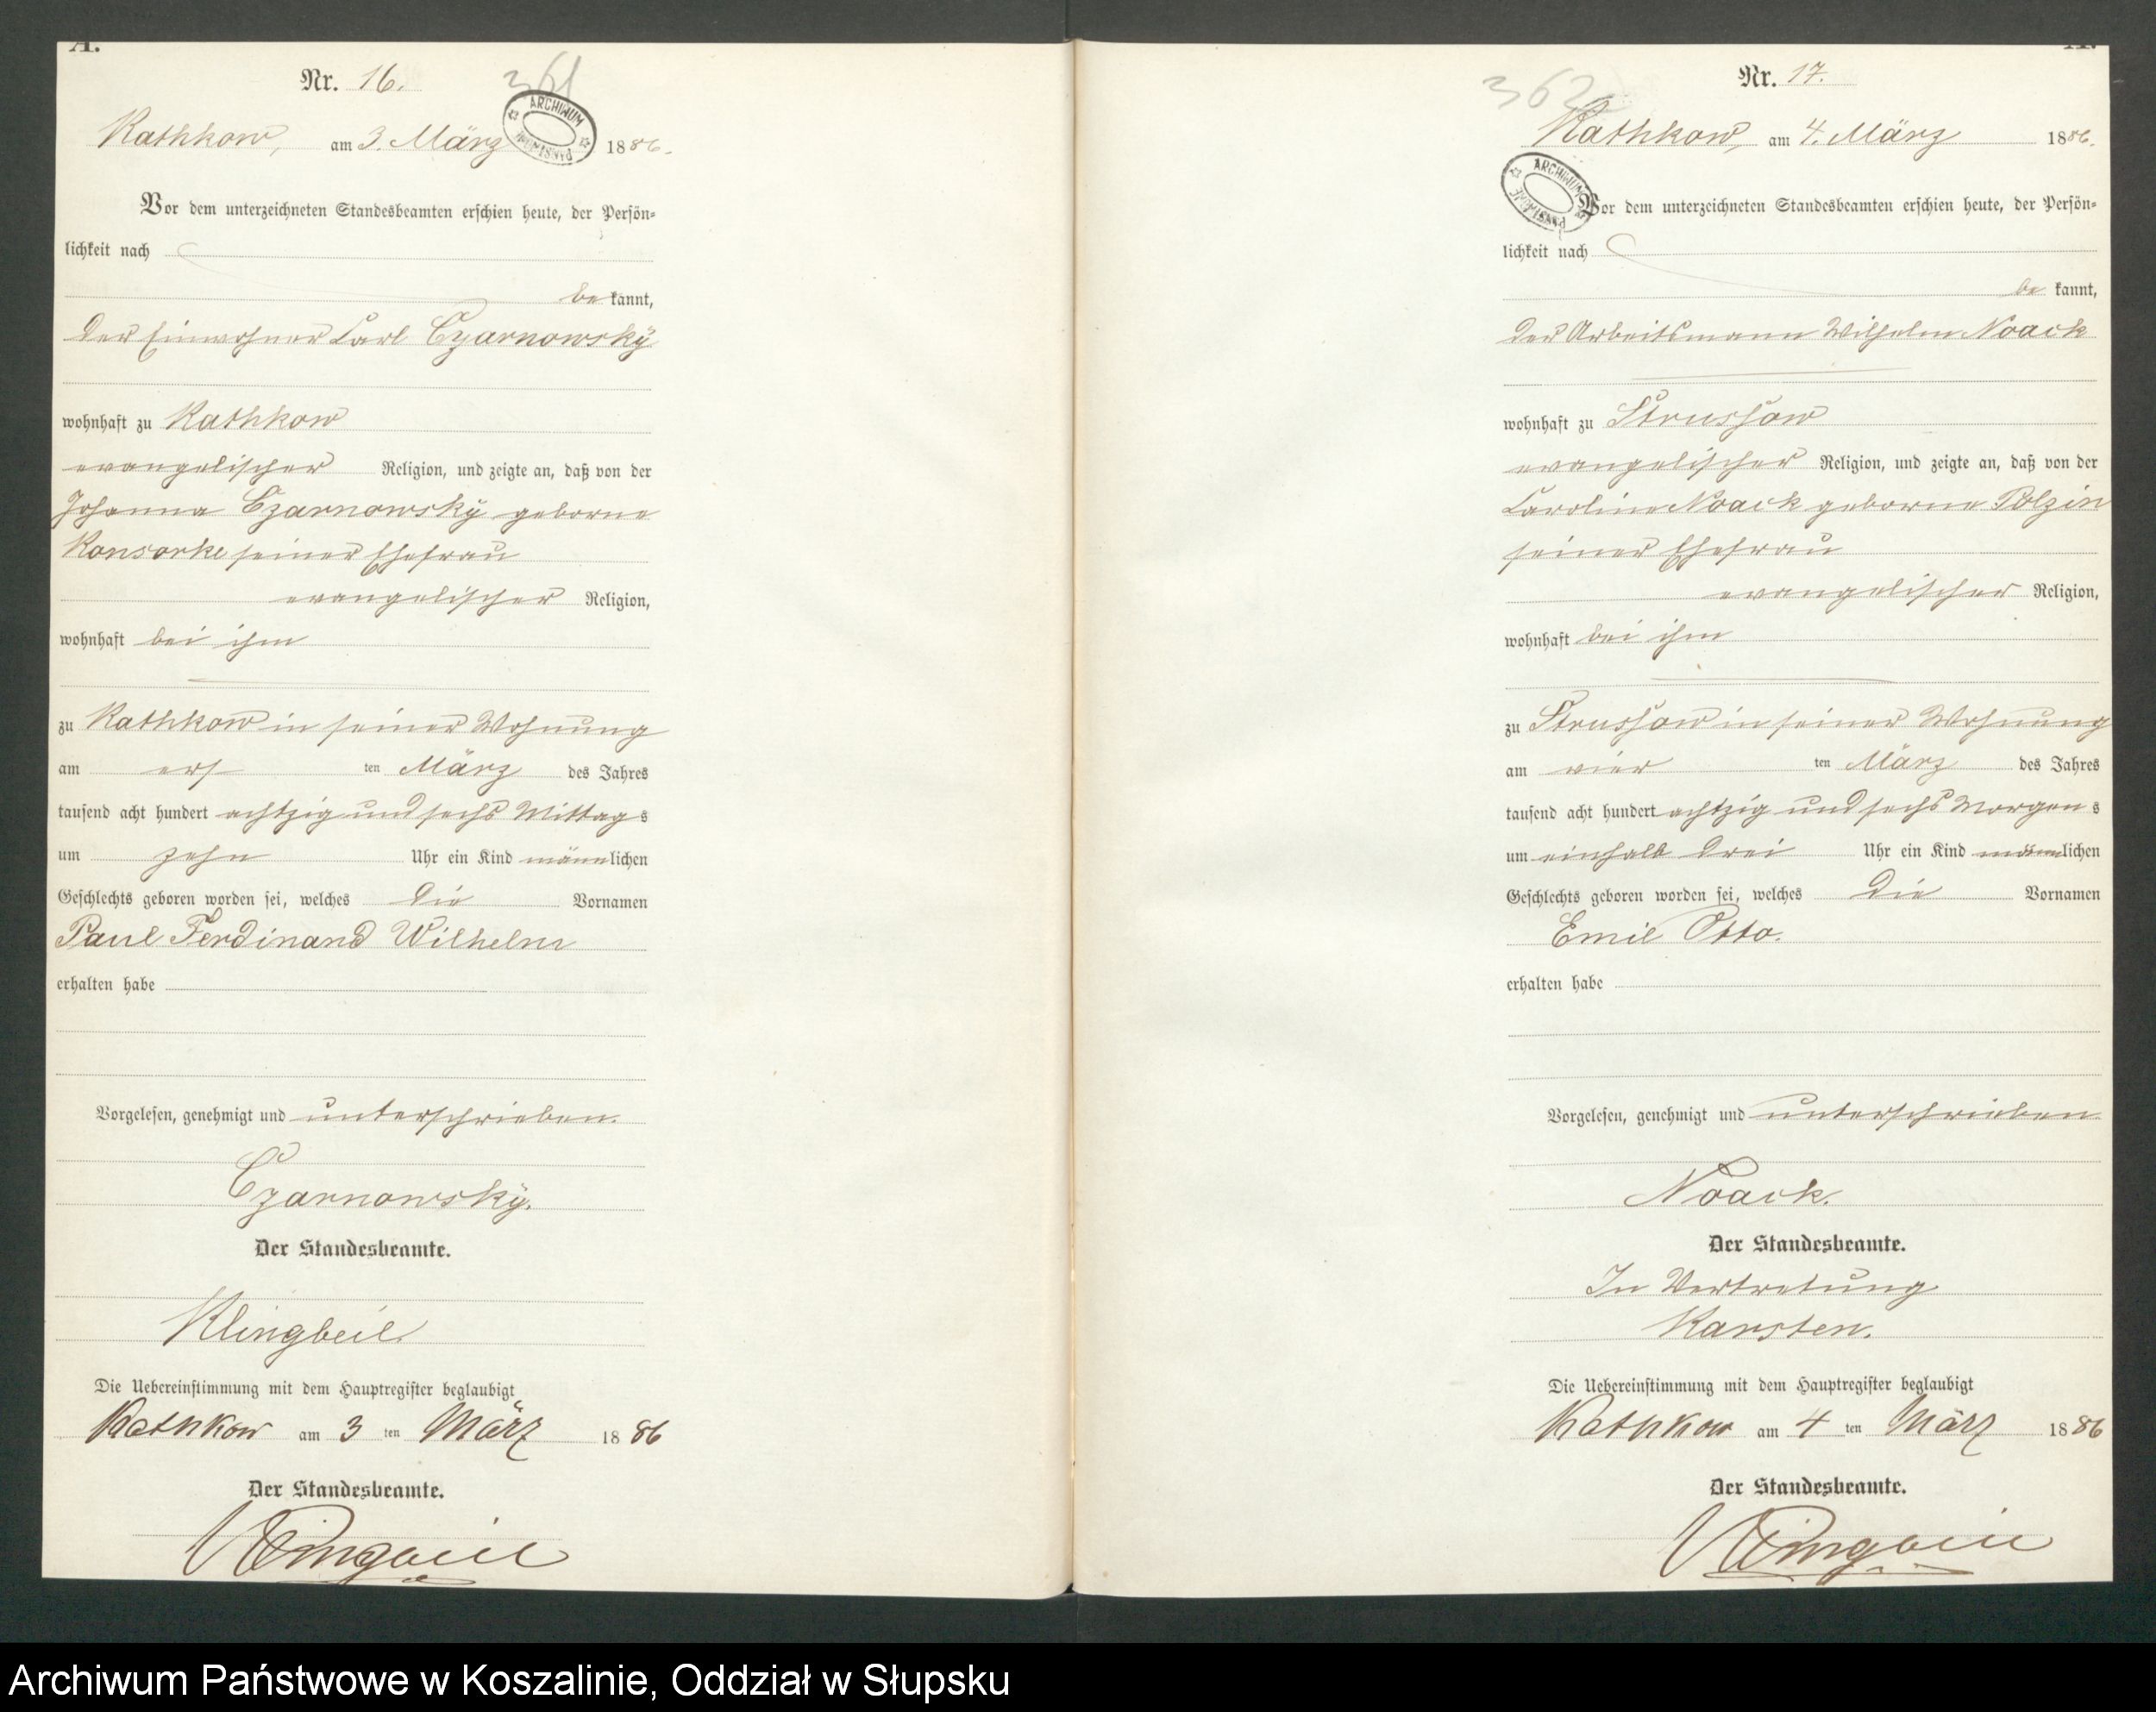 A.
Nr. 16.
361
ARCHIWUM PAŃSTWOWE
Kathkow, am 3. März 1886.
Vor dem unterzeichneten Standesbeamten erschien heute, der Persön-
lichkeit nach
be kannt,
der Einwohner Carl Czarnowsky
wohnhaft zu Kathkow
evangelischer Religion, und zeigte an, daß von der
Johanna Czarnowsky geborne
Konsorke seiner Ehefrau
evangelischer Religion,
wohnhaft bei ihm
zu Kathkow in seiner Wohnung
am ersten März des Jahres
tausend acht hundert achtzig und sechs Mittags
um zehn Uhr ein Kind männlichen
Geschlechts geboren worden sei, welches die Vornamen
Paul Ferdinand Wilhelm
erhalten habe
Vorgelesen, genehmigt und unterschrieben.
Czarnowsky.
Der Standesbeamte.
Klingbeil
Die Uebereinstimmung mit dem Hauptregister beglaubigt
Kathkow am 3 ten März 1886
Der Standesbeamte.
Klingbeil
A.
Nr. 17.
362
Kathkow, am 4. März 1886.
ARCHIWUM PAŃSTWOWE
Vor dem unterzeichneten Standesbeamten erschien heute, der Persön-
lichkeit nach
be kannt,
der Arbeitsmann Wilhelm Noack
wohnhaft zu Strussow
evangelischer Religion, und zeigte an, daß von der
Caroline Noack geborne Polzin
seiner Ehefrau
evangelischer Religion,
wohnhaft bei ihm
zu Strussow in seiner Wohnung
am vier ten März des Jahres
tausend acht hundert achtzig und sechs Morgens
um einhalb drei Uhr ein Kind männlichen
Geschlechts geboren worden sei, welches die Vornamen
Emil Otto.
erhalten habe
Vorgelesen, genehmigt und unterschrieben
Noack.
Der Standesbeamte.
In Vertretung
Karsten.
Die Uebereinstimmung mit dem Hauptregister beglaubigt
Kathkow am 4 ten März 1886
Der Standesbeamte.
Klingbeil
Archiwum Państwowe w Koszalinie, Oddział w Słupsku